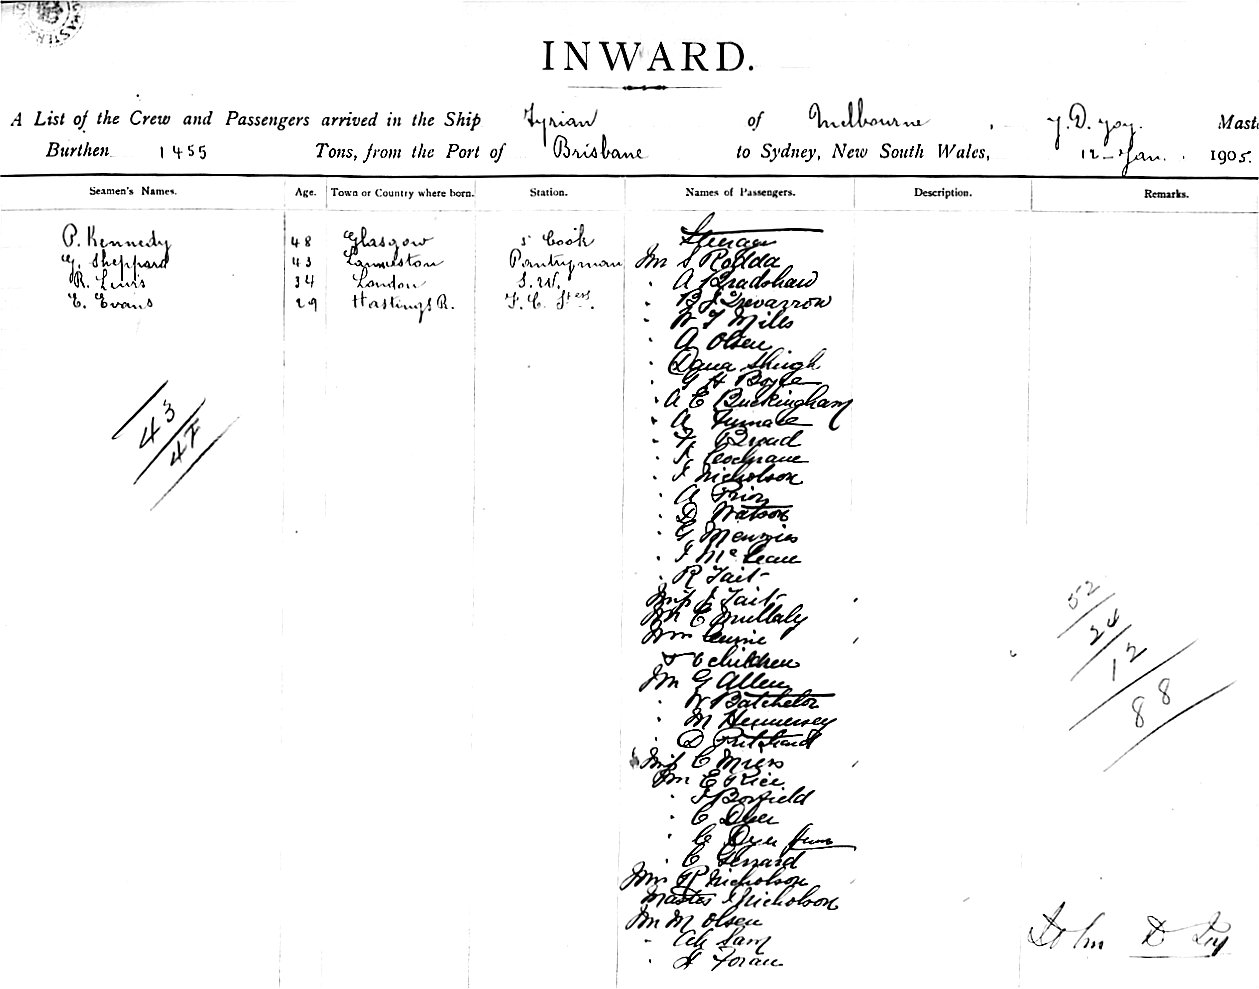 INWARD.
A List of the Crew and Passengers arrived in the Ship Tyrian of Melbourne, J. D. Joy. Mast
Burthen 1455 Tons, from the Port of Brisbane to Sydney, New South Wales, 12 Jan. 1905.
Seamen's Names. Age. Town or Country where born. Station. Names of Passengers. Description. Remarks.
Steerage
P. Kennedy 48 Glasgow S Cook
G. Sheppard 43 Launceston Pantryman Mr S Rodda
R. Lewis 34 London S.W. " A Bradshaw
E. Evans 29 Hastings R. F. C. Stess. " B J Trevarrow
" W T Mills
" A Olsen
" Shingh
" G H Boyle
" A E Buckingham
" A Furnace
" F Broud
" F Cochrane
" F Nicholson
" A Prior
" D Watson
" G Menzies
" J McLean
" R Tait
Miss J Tait
Mr E Mullaly
Mrs Currie
& children
Mr G Allen
" W Batchelor
" M Hennessey
" D Pritchard
Miss C Miers
Mr E Rice
" J Bosfield
" C Dyer
" C Dyer Junr
" C Gerrard
Mrs R Nicholson
Master J Nicholson
Mr M Olsen
" Ah Sam
" J Foran
43
47
52
24
12
88
John D Joy